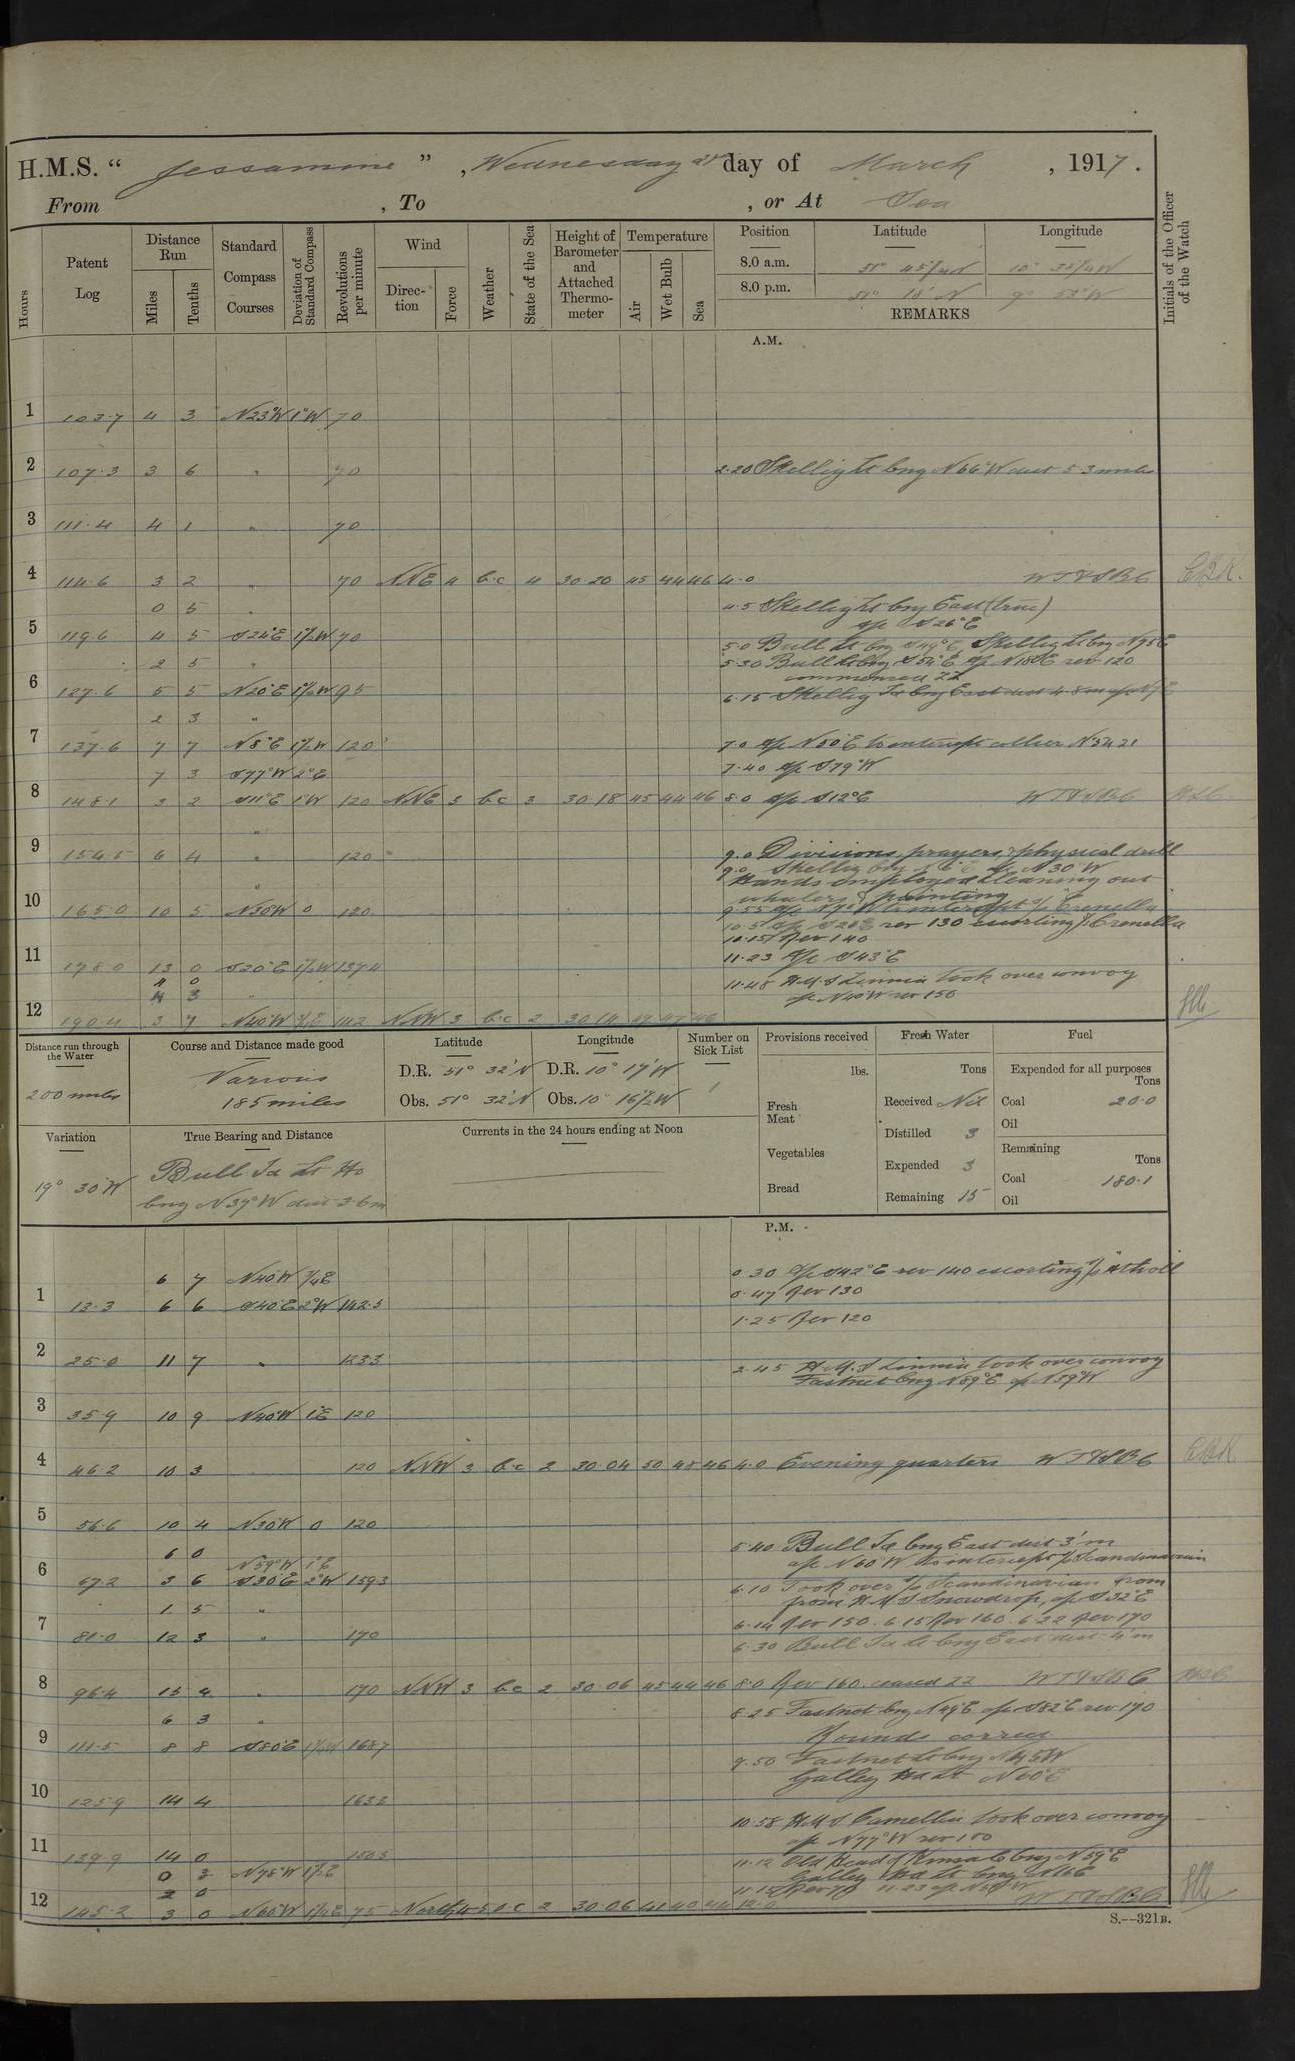 H.M.S. “ Jessamine ” , Wednesday 21st day of March , 1917.
From , To , or At Sea
Hours
Patent Log
Distance Run
Miles
Tenths
Standard Compass Courses
Deviation of Standard Compass
Revolutions per minute
Wind
Direc-tion
Force
Weather
State of the Sea
Height of Barometer and Attached Thermo-meter
Temperature
Air
Wet Bulb
Sea
Position Latitude Longitude
8.0 a.m. 51° 45¼N 10° 35¼W
8.0 p.m. 51° 18' N 9° 53'W
REMARKS
Initials of the Officer of the Watch
A.M.
1 103.7 4 3 N23°W 1°W 70
2 107.3 3 6 " 70 2.20 Skellig Lt brg N66°W dist 5.3 miles
3 111.4 4 1 " 70
4 114.6 3 2 " 70 NNE 4 b.c 4 30.20 45 44 46 4.0 WT&SBC
0 5 " 4.5 Skellig Lt brg East (true)
a/c S26°E
5 119.6 4 5 S24°E 1½W 70 5.0 Bull Lt brg S49°E, Skellig Lt brg N75E
2 5 " 5.30 Bull Lt brg S54°E a/c N18°E rev 120
commenced ZZ
6 127.6 5 5 N20°E 1½W 95 6.15 Skellig Id brg East dist 4.8m a/c N7°E
2 3 "
7 137.6 7 7 N8°E 1½W 120 7.0 a/c N50°E to intercept collier N3421
7 3 S77°W 2°E 7.40 a/c S79°W
8 148.1 3 2 S11°E 1°W 120 NNE 3 b.c 3 30.18 45 44 46 8.0 a/c S12°E WT&SBC
9 154.5 6 4 " 120 9.0 Divisions, prayers, & physical drill
Hands employed cleaning out
whalers & painting
10 165.0 10 5 N30W 0 120
10.5 a/c S20E rev 130 escorting S/S Crenella
10.15 Rev 140
11 178.0 13 0 S20°E 1½W 137.4 11.23 A/c S43°E
4 0 11.48 H.M.S Zinnia took over convoy
4 3 " a/c N40°W rev 150
12 190.4 3 7 N40W ¾E 142 NNW 3 b.c 2 30.14 47 47 46
Distance run through the Water
200 miles
Course and Distance made good
Various
185 miles
Latitude
D.R. 51° 32'N
Obs. 51° 32'N
Longitude
D.R. 10° 17'W
Obs. 10° 16½W
Number on Sick List
1
Provisions received
lbs.
Fresh Meat
Vegetables
Bread
Fresh Water
Tons
Received Nil
Distilled 3
Expended 3
Remaining 15
Fuel
Expended for all purposes
Tons
Coal 20.0
Oil
Remaining
Tons
Coal 180.1
Oil
Variation
19° 30'W
True Bearing and Distance
Bull Id Lt Ho
brg N39°W dist 3.6m
Currents in the 24 hours ending at Noon
P.M.
6 7 N40°W ¾E 0.30 a/c S42°E rev 140 escorting S/S Atholl
1 13.3 6 6 S40°E 2°W 142.5 0.47 Rev 130
1.25 Rev 120
2 25.0 11 7 " 123.3 2.45 H.M.S Zinnia took over convoy
Fastnet brg N89°E a/c N39°W
3 35.9 10 9 N40°W 1°E 120
4 46.2 10 3 120 NNW 3 b.c 2 30.04 50 48 46 4.0 Evening quarters WT&SBC
5 56.6 10 4 N30°W 0 120
6 0 5.40 Bull Id brg East dist 3'm
N59°W 1°E a/c N60°W to intercept S/S Scandinavian
6 67.2 3 6 S30°E 2°W 159.3 6.10 Took over S/S Scandinavian from
1 5 " from H.M.S Snowdrop, a/c S32°E
6.14 Rev 150. 6.15 Rev 160. 6.22 Rev 170
7 81.0 12 3 " 170 6.30 Bull Id Lt brg East dist 4'm
8 96.4 15 4 " 170 NNW 3 b.c 2 30.06 45 44 46 8.0 Rev 160. ceased ZZ WT&SBC
6 3 " 8.25 Fastnet brg N49°E a/c S82°E rev 170
Rounds correct
9 111.5 8 8 S80°E 168.7
9.50 Fastnet Lt brg N45W
Galley Hd Lt N60°E
10 125.9 14 4 163.3
10.58 H.M.S Camellia took over convoy
a/c N77°W rev 150
11 139.9 14 0 150.5 11.12 Old Head of Kinsale brg N59°E
0 3 N78°W 1½E Galley Hd Lt brg N16E
2 0
12 145.2 3 0 N60°W 1½E 75 North 4-5 b.c 2 30.06 12.0 WT&SBC
S.—321B.